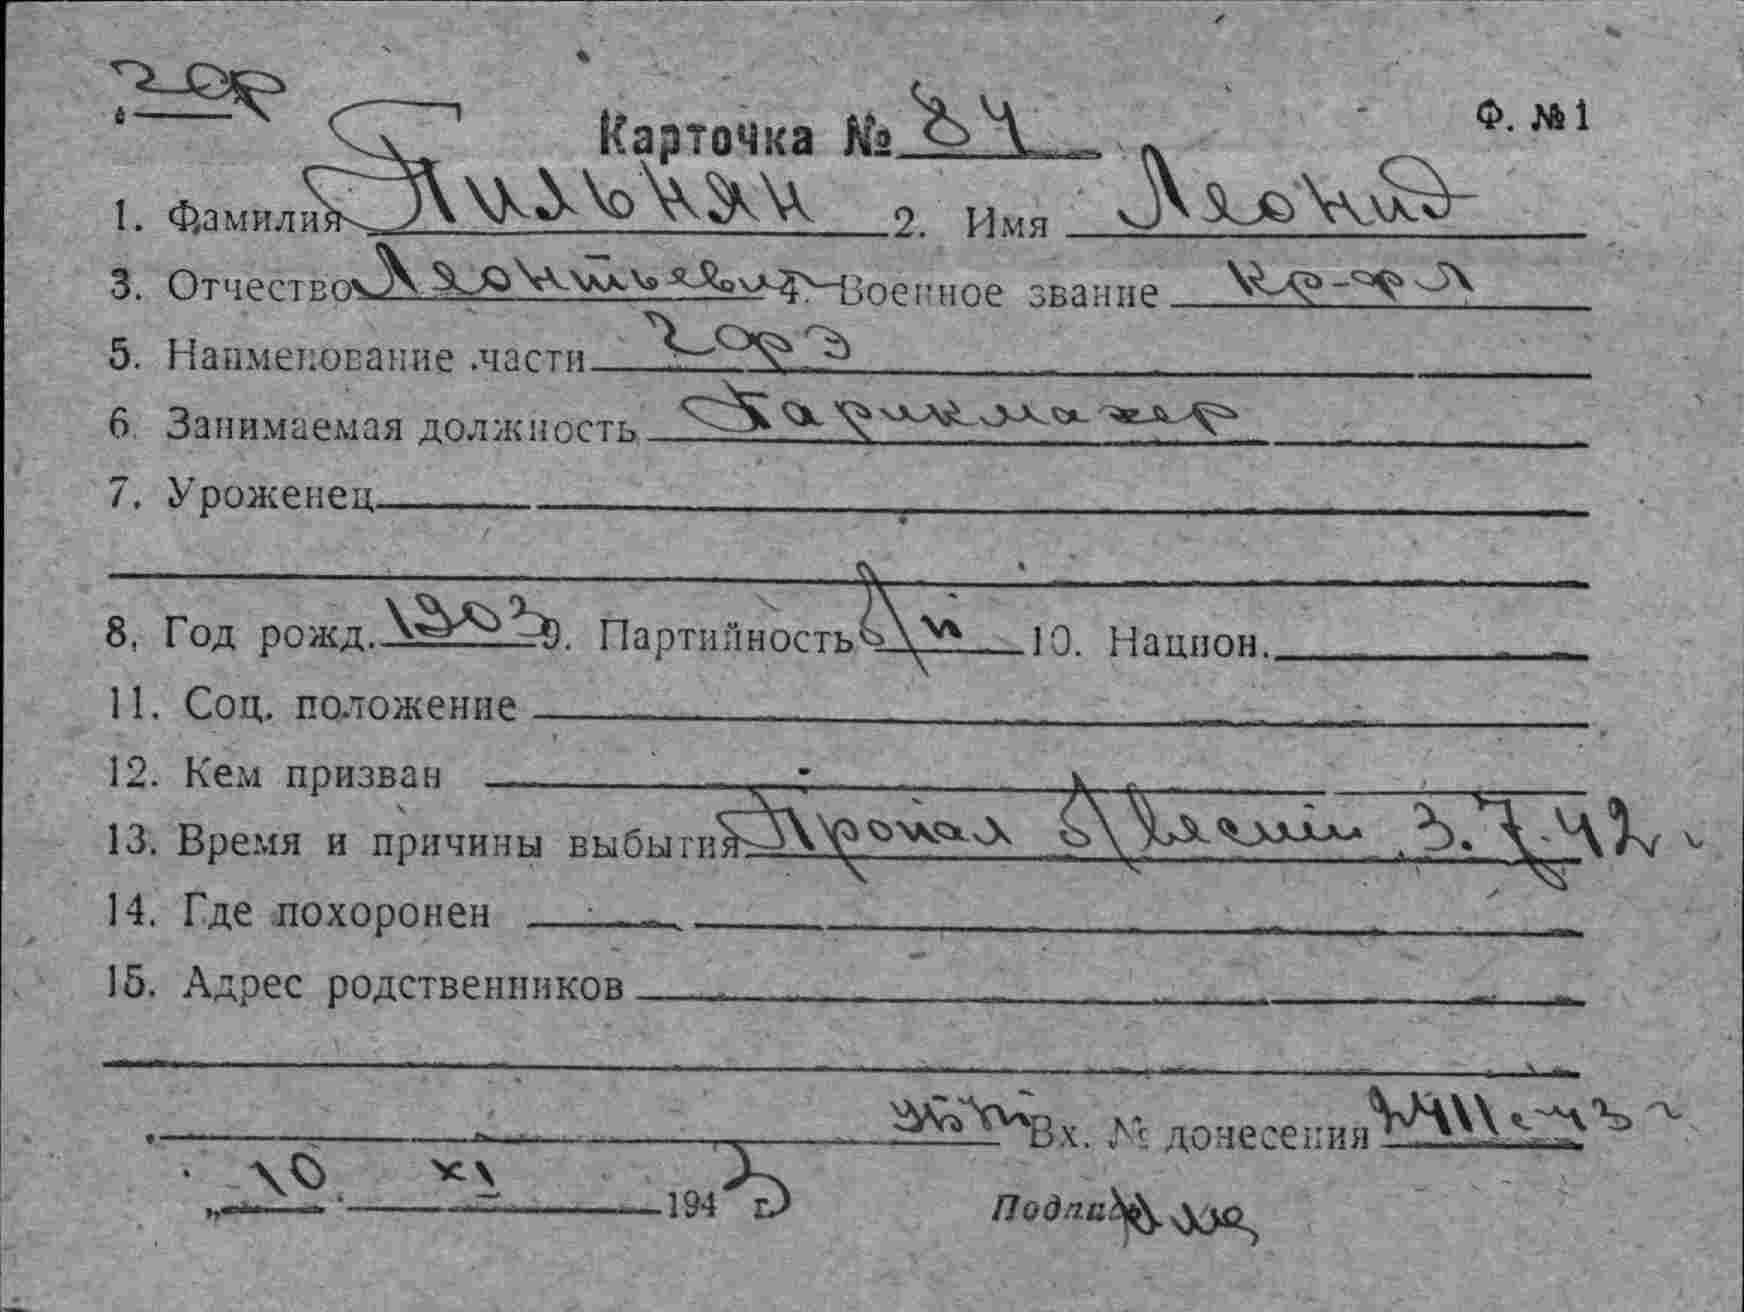 Карточка № 84
Ф. № 1
1. Фамилия Пильнян 2. Имя Леонид
3. Отчество Леонтьевич 4. Военное звание кр-фл
5. Наименование части
6. Занимаемая должность Парикмахер
7. Уроженец
8. Год рожд. 1903 9. Партийность б/п 10. Национ.
11. Соц. положение
12. Кем призван
13. Время и причины выбытия Пропал б/вести 3.7.42 г
14. Где похоронен
15. Адрес родственников
Вх. № донесения
„ 10 XI 1943 г.
Подпись